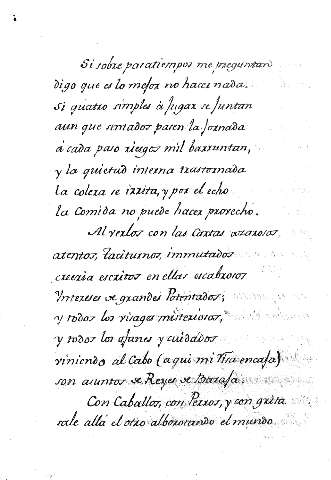 Si sobre pasatiempos me preguntan
digo que es lo mejor no hacer nada.
Si quatro simples à jugar se juntan
aun que sentados pasen la jornada
à cada paso riesgos mil barruntan,
y la quietud interna trastornada
la colera se irrita, y por el echo
la Comida no puede hacer provecho.
Al verlos con las Cartas azarosos
atentos, taciturnos, immutados
creeria escritos en ellas escabrosos
Yntereses de grandes Potentados;
y todos los visages misteriosos,
y todos los afanes y cuidados
viniendo al Cabo (a qui mi encaja)
son asuntos de Reyes de Baraja.
Con Caballos, con Perros, y con grita
sale allá el otro alborotando el mundo